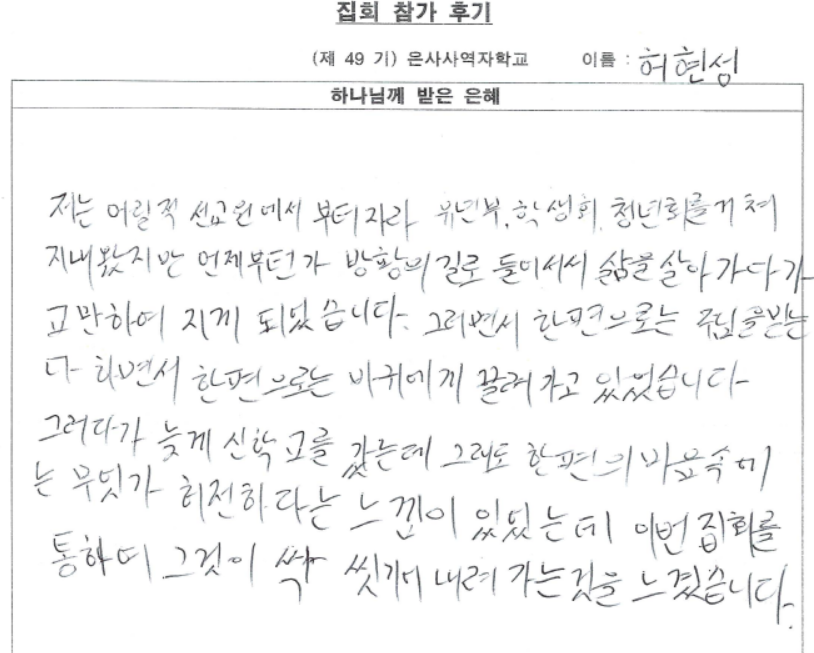 집회 참가 후기
(제 49 기) 은사사역자학교 이름 : 허현성
하나님께 받은 은혜
저는 어릴적 선교원에서 부터자라 유년부, 학생회, 청년회를거쳐
지내왔지만 언제부턴가 방황의 길로 들어서서 삶을 살아가다가
교만하여 지게 되었습니다. 그러면서 한편으로는 주님을믿는
다 하면서 한편으로는 마귀에게 끌려가고 있었습니다
그러다가 늦게 신학교를 갔는데 그래도 한편의 마음속에
는 무엇가 허전하다는 느낌이 있었는데 이번 집회를
통하여 그것이 싹 씻겨 내려 가는것을 느겼습니다.